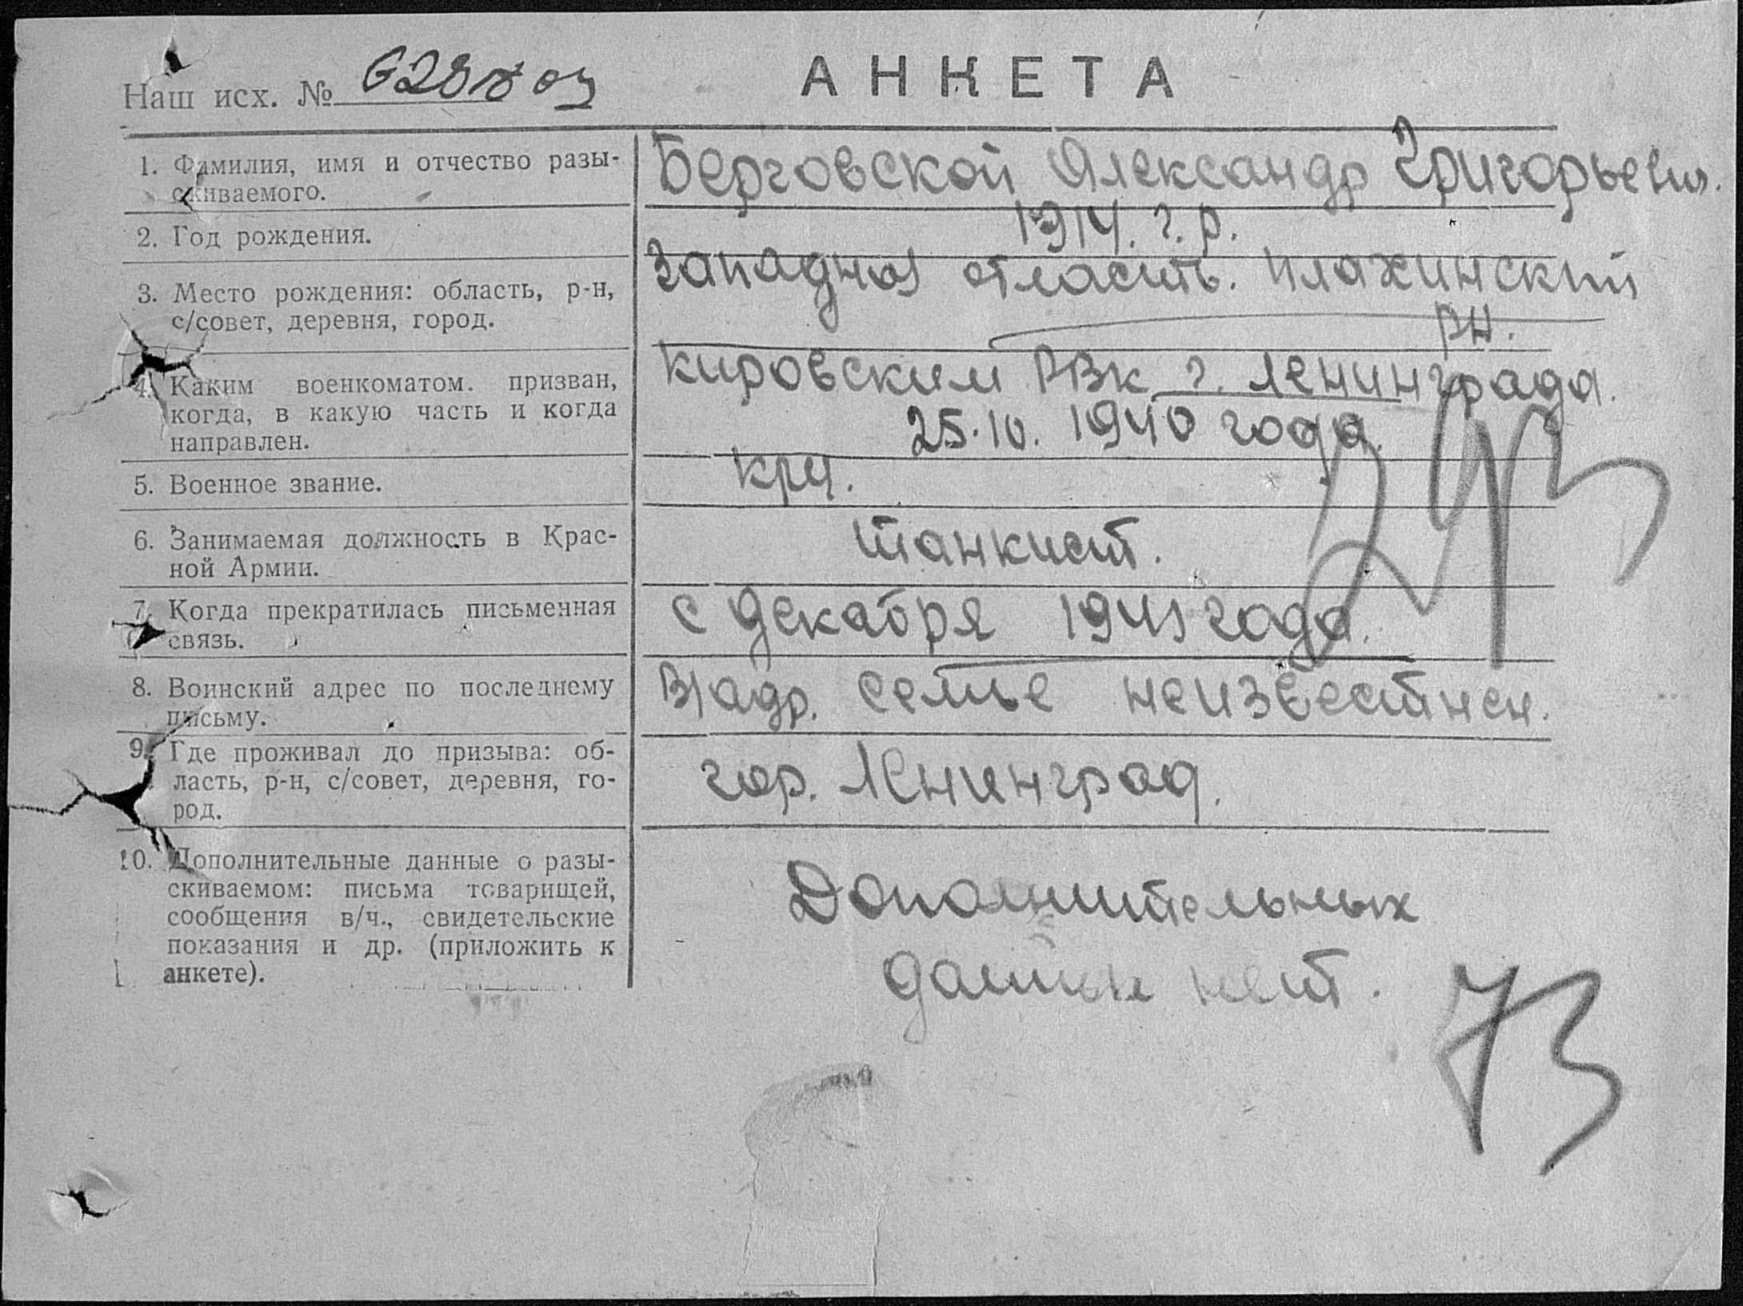 Наш исх. №
АНКЕТА
1. Фамилия, имя и отчество разы-
скиваемого.
Берговской Александр Григорьевич.
2. Год рождения.
1914. г.р.
3. Место рождения: область, р-н,
с/совет, деревня, город.
Западная
рн.
4. Каким военкоматом. призван,
когда, в какую часть и когда
направлен.
Кировским РВК г. Ленинграда.
25.10. 1940 года.
5. Военное звание.
кр-ц.
6. Занимаемая должность в Крас-
ной Армии.
танкист.
7. Когда прекратилась письменная
связь.
с декабря 1941 года.
8. Воинский адрес по последнему
письму.
В/адр. семье неизвестнен.
9. Где проживал до призыва: об-
ласть, р-н, с/совет, деревня, го-
род.
гор. Ленинград.
10. Дополнительные данные о разы-
скиваемом: письма товарищей,
сообщения в/ч., свидетельские
показания и др. (приложить к
анкете).
Дополнительных
данных нет.
73